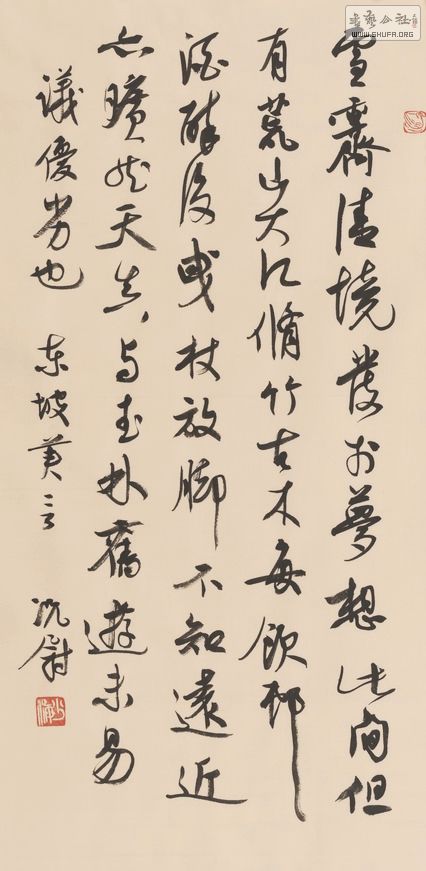 書藝公社
WWW.SHUFA.ORG
雪霽清境發於夢想此間但
有荒山大江脩竹古木每飲邨
酒醉後曳杖放脚不知遠近
亦曠然天真与武林舊遊未易
議優劣也 東坡 言 沈尉